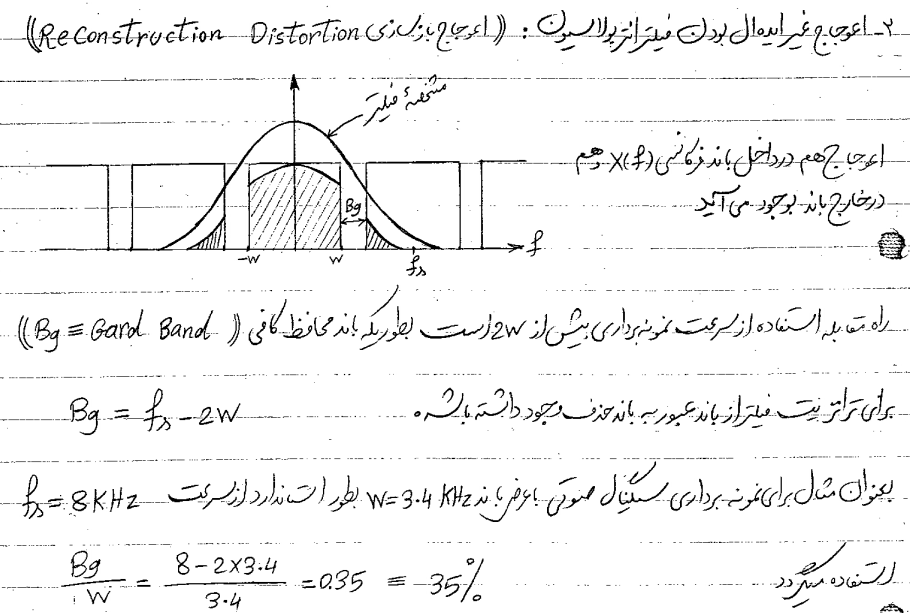 ۲- اعوجاج غیر ایده‌ال بودن فیلتر انترپولاسیون : ((اعوجاج بازسازی Reconstruction Distortion))
مشخصهٔ فیلتر
اعوجاج هم در داخل باند فرکانسی X(f) و هم
در خارج باند بوجود می آید
Bg
-w w fs f
راه مقابله استفاده از سرعت نمونه برداری بیش از 2W است بطوریکه باند محافظ کافی ((Bg ≡ Gard Band))
برای ترانزیت فیلتر از باند عبور به باند حذف وجود داشته باشد. Bg = fs - 2W
بعنوان مثال برای نمونه برداری سیگنال صوتی با عرض باند W = 3.4 KHz بطور استاندارد از سرعت fs = 8 KHz
استفاده میگردد
Bg/W = (8 - 2×3.4)/3.4 = 0.35 ≡ 35%